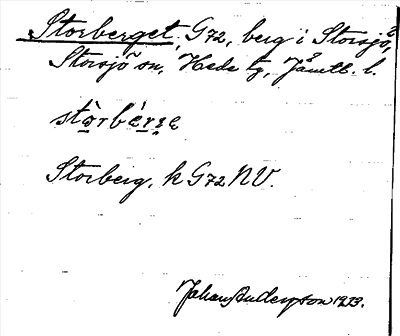 Storberget, G72, berg i Storsjö,
Storsjö sn, Hede tg, Jämtl. l.
stòrbérɜe
Storberg, k G72 NV.
Johan Anderson 1933.